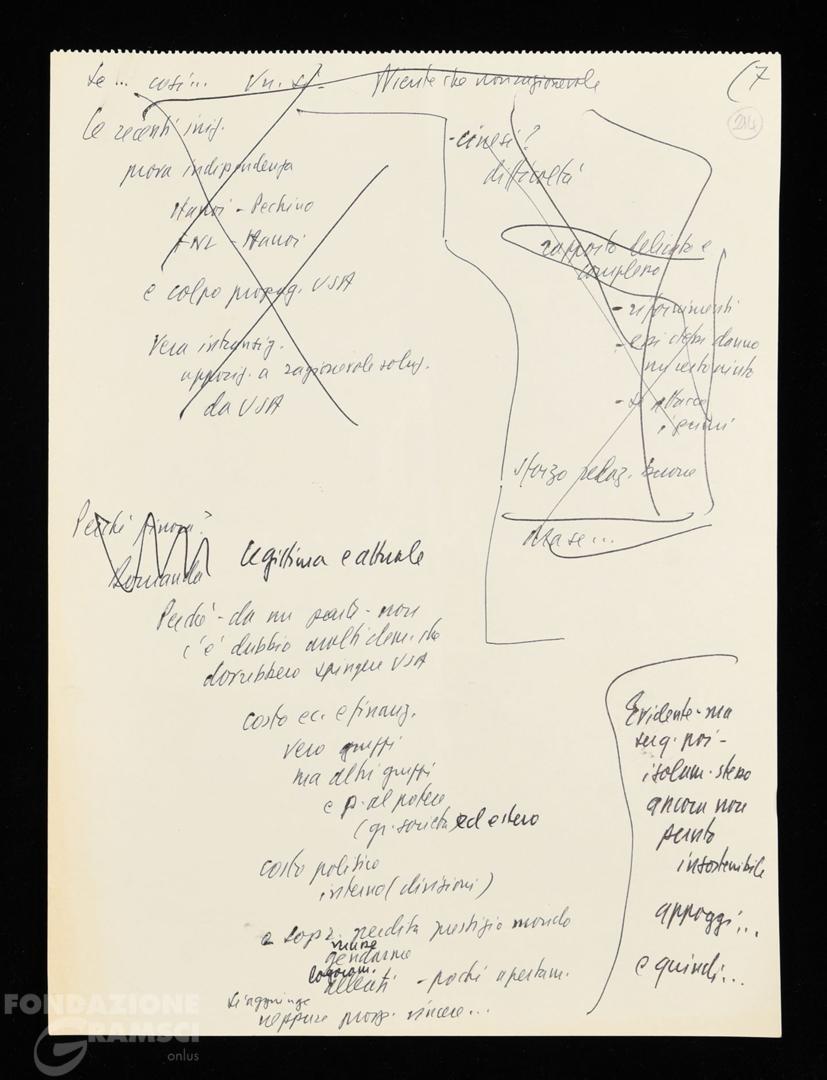 Se... così... Vn. sì - Niente che non ragionevole
(7
214
Le recenti iniz.
prova indipendenza
Hanoi - Pechino
FNL - Hanoi
e colpo propag. USA
Vera intransig.
opposiz. a ragionevole soluz.
da USA
- cinesi?
difficoltà
rapporto delicato e
complesso
- rifornimenti
- essi stessi danno
- se attacco
sforzo relaz. buone
Ma se...
Perché finora?
Domanda
legittima e attuale
Perché - da un punto - non
c'è dubbio molti elem. che
dovrebbero spingere USA
costo ec. e finanz.
vero gruppi
ma altri gruppi
e p. al potere
(gr. società ed estero
costo politico
interno (divisioni)
e sopr. perdita prestigio mondo
gendarme
logoram.
alleati - pochi apertam.
Si aggiunge
neppure prosp. vincere...
Evidente - ma
poi -
isolam. stesso
ancora non
punto
insostenibile
appoggi...
e quindi...
FONDAZIONE
GRAMSCI
onlus